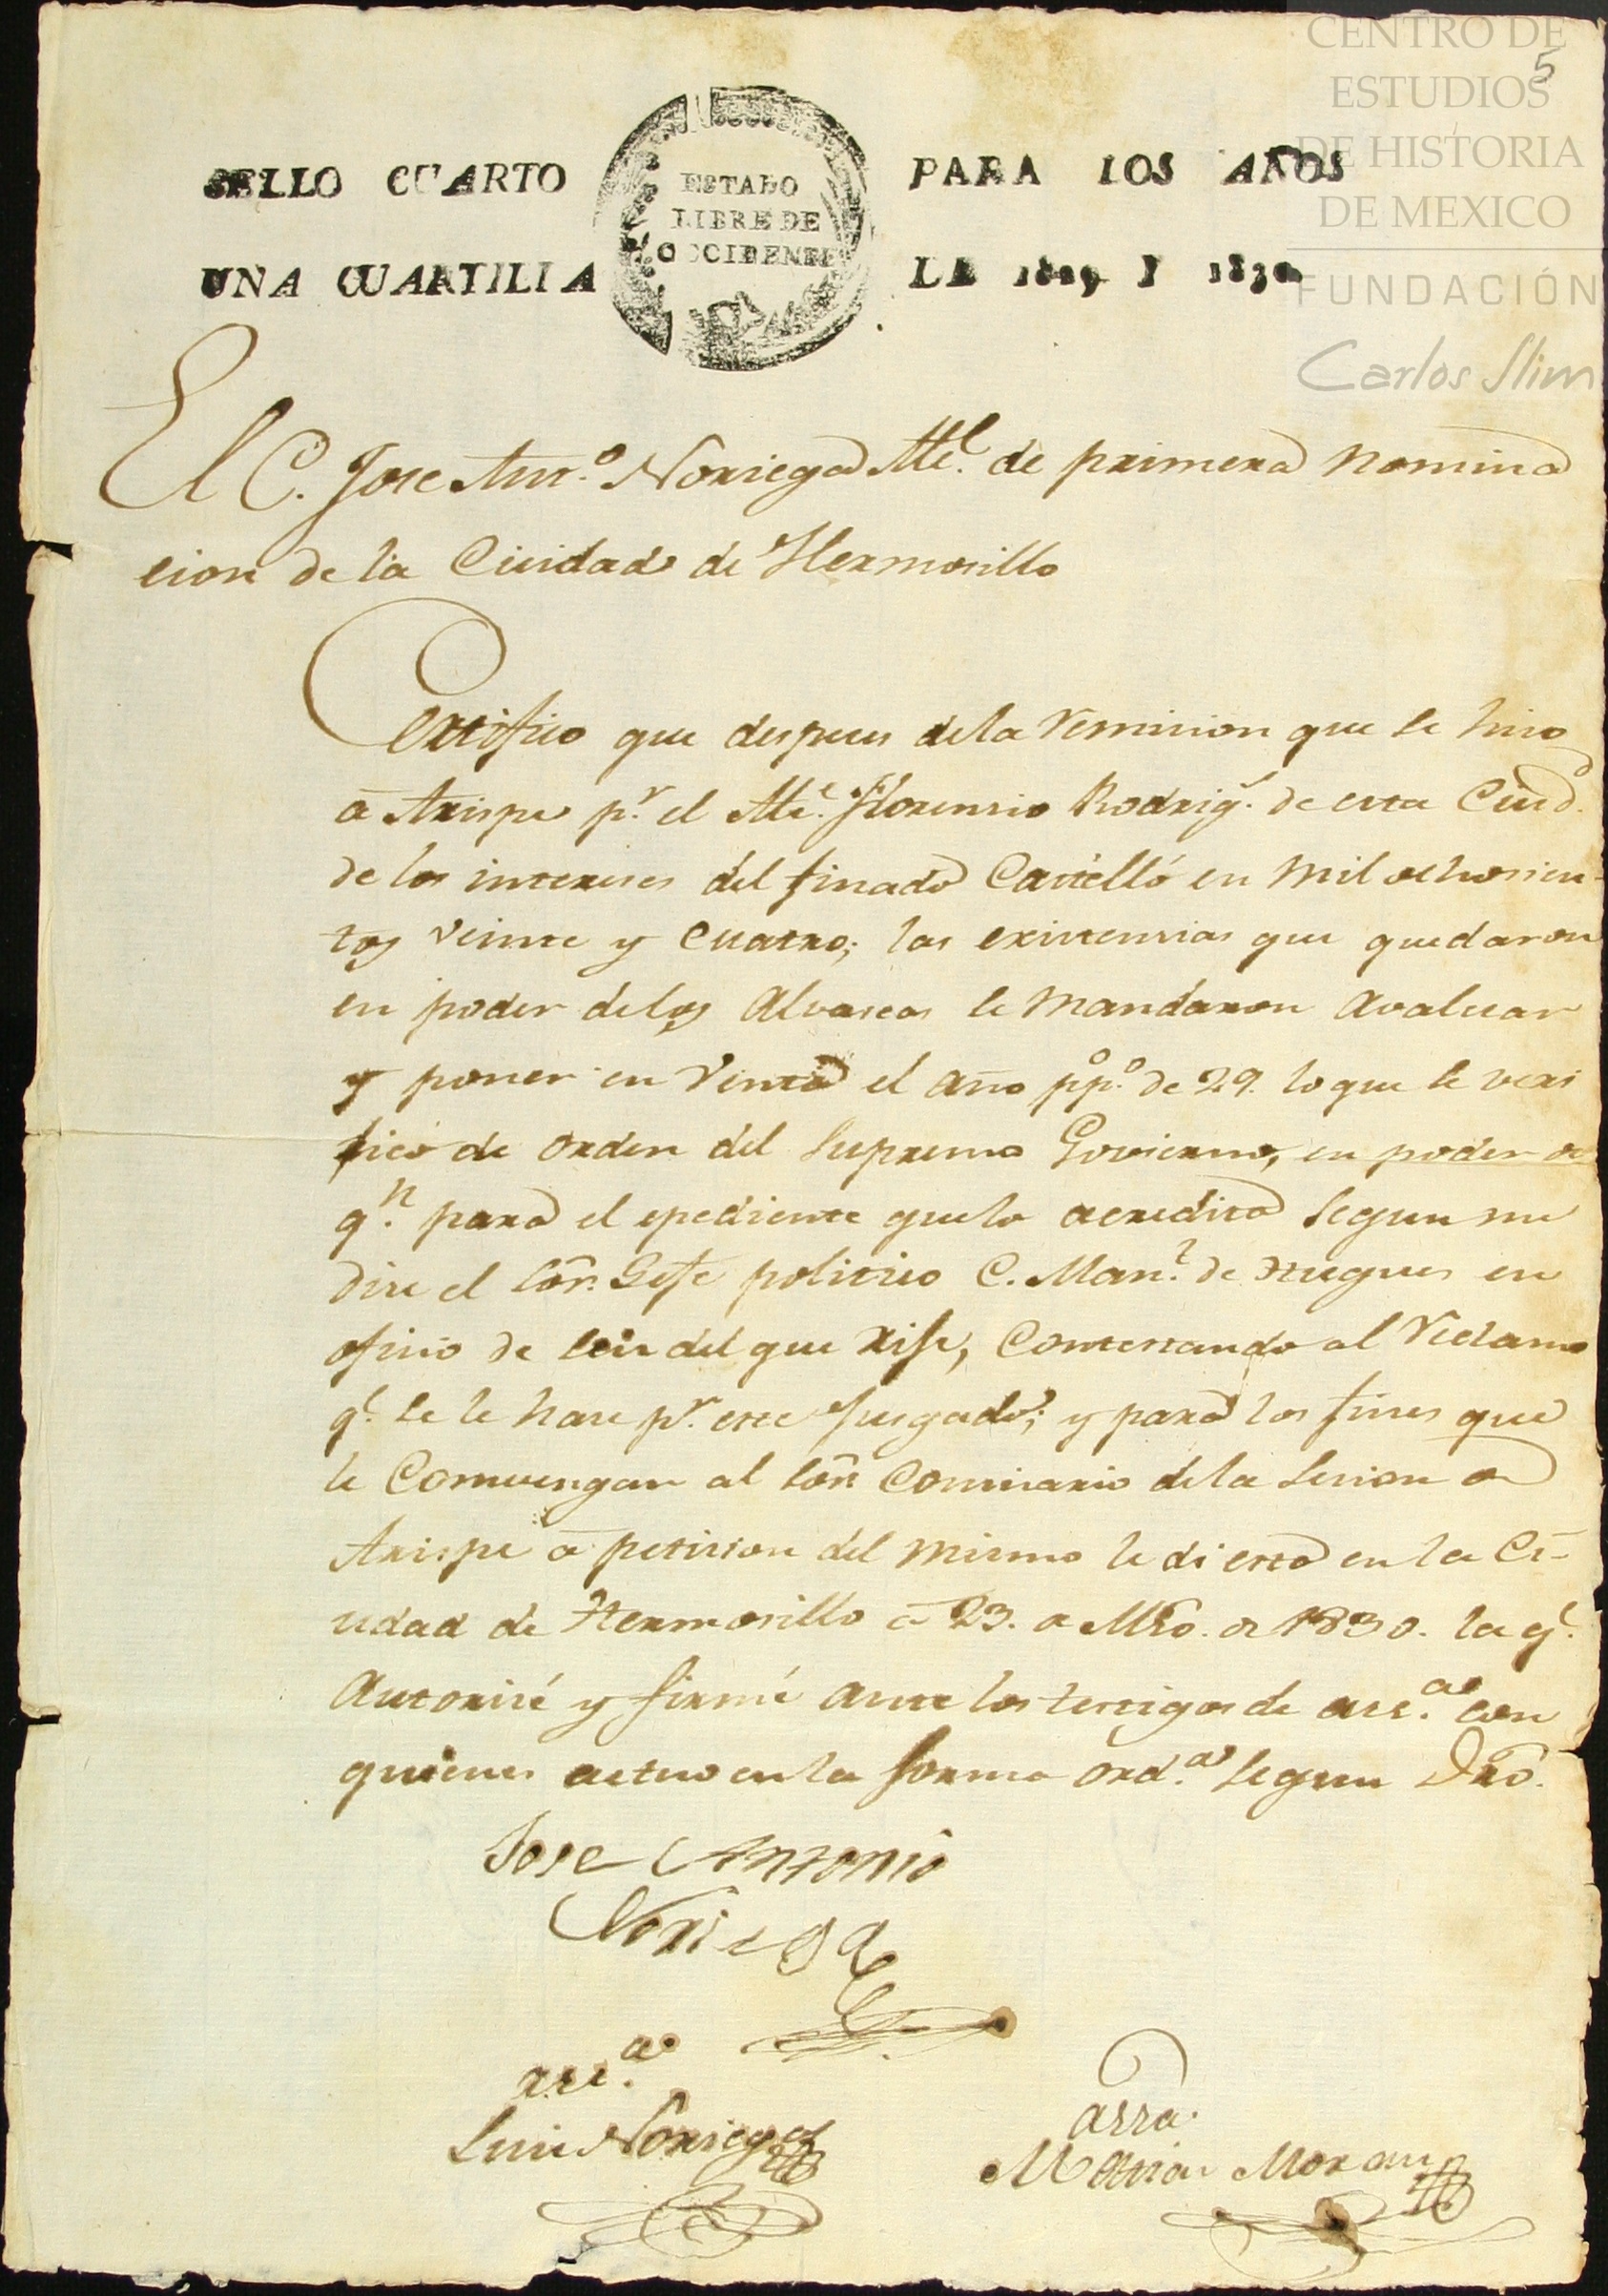 CENTRO DE
ESTUDIOS
DE HISTORIA
DE MEXICO
FUNDACIÓN
Carlos Slim
5
SELLO CUARTO
UNA CUARTILLA
ESTADO
LIBRE DE
OCCIDENTE
PARA LOS AÑOS
DE 1829 Y 1830
El C. Jose Anto. Noriega Alle. de primera nomina
cion de la Ciudad de Hermosillo
Certifico que despues de la remision que se hiso
a Arispe pr. el Alle. Florensio Rodrig. de esta Ciud.
de los intereses del finado Castelló en mil ochosien-
tos veinte y cuatro; las existensias que quedaron
en poder de los Alvaseas se mandaron avaluar
y poner en venta el año ppo. de 29. lo que se veri
ficó de orden del Supremo Govierno, en poder de
qn. para el epediente que lo acredita segun me
dise el Sor. Gefe politico C. Manl. de en
ofisio de seis del que rije, contestando al reclamo
q. se le hase pr. este Jusgado; y para los fines que
le combengan al Sor. Comisario de la sesion de
Arispe a petision del mismo le di esta en la Ci-
udad de Hermosillo a 23. de Mzo. de 1830. la q.
autorisé y firmé ante los testigos de assa. con
quienes actuo en la forma orda. segun Dro.
Jose Antonio
Noriega
assa.
Luis Noriega
assa.
Matias Moran